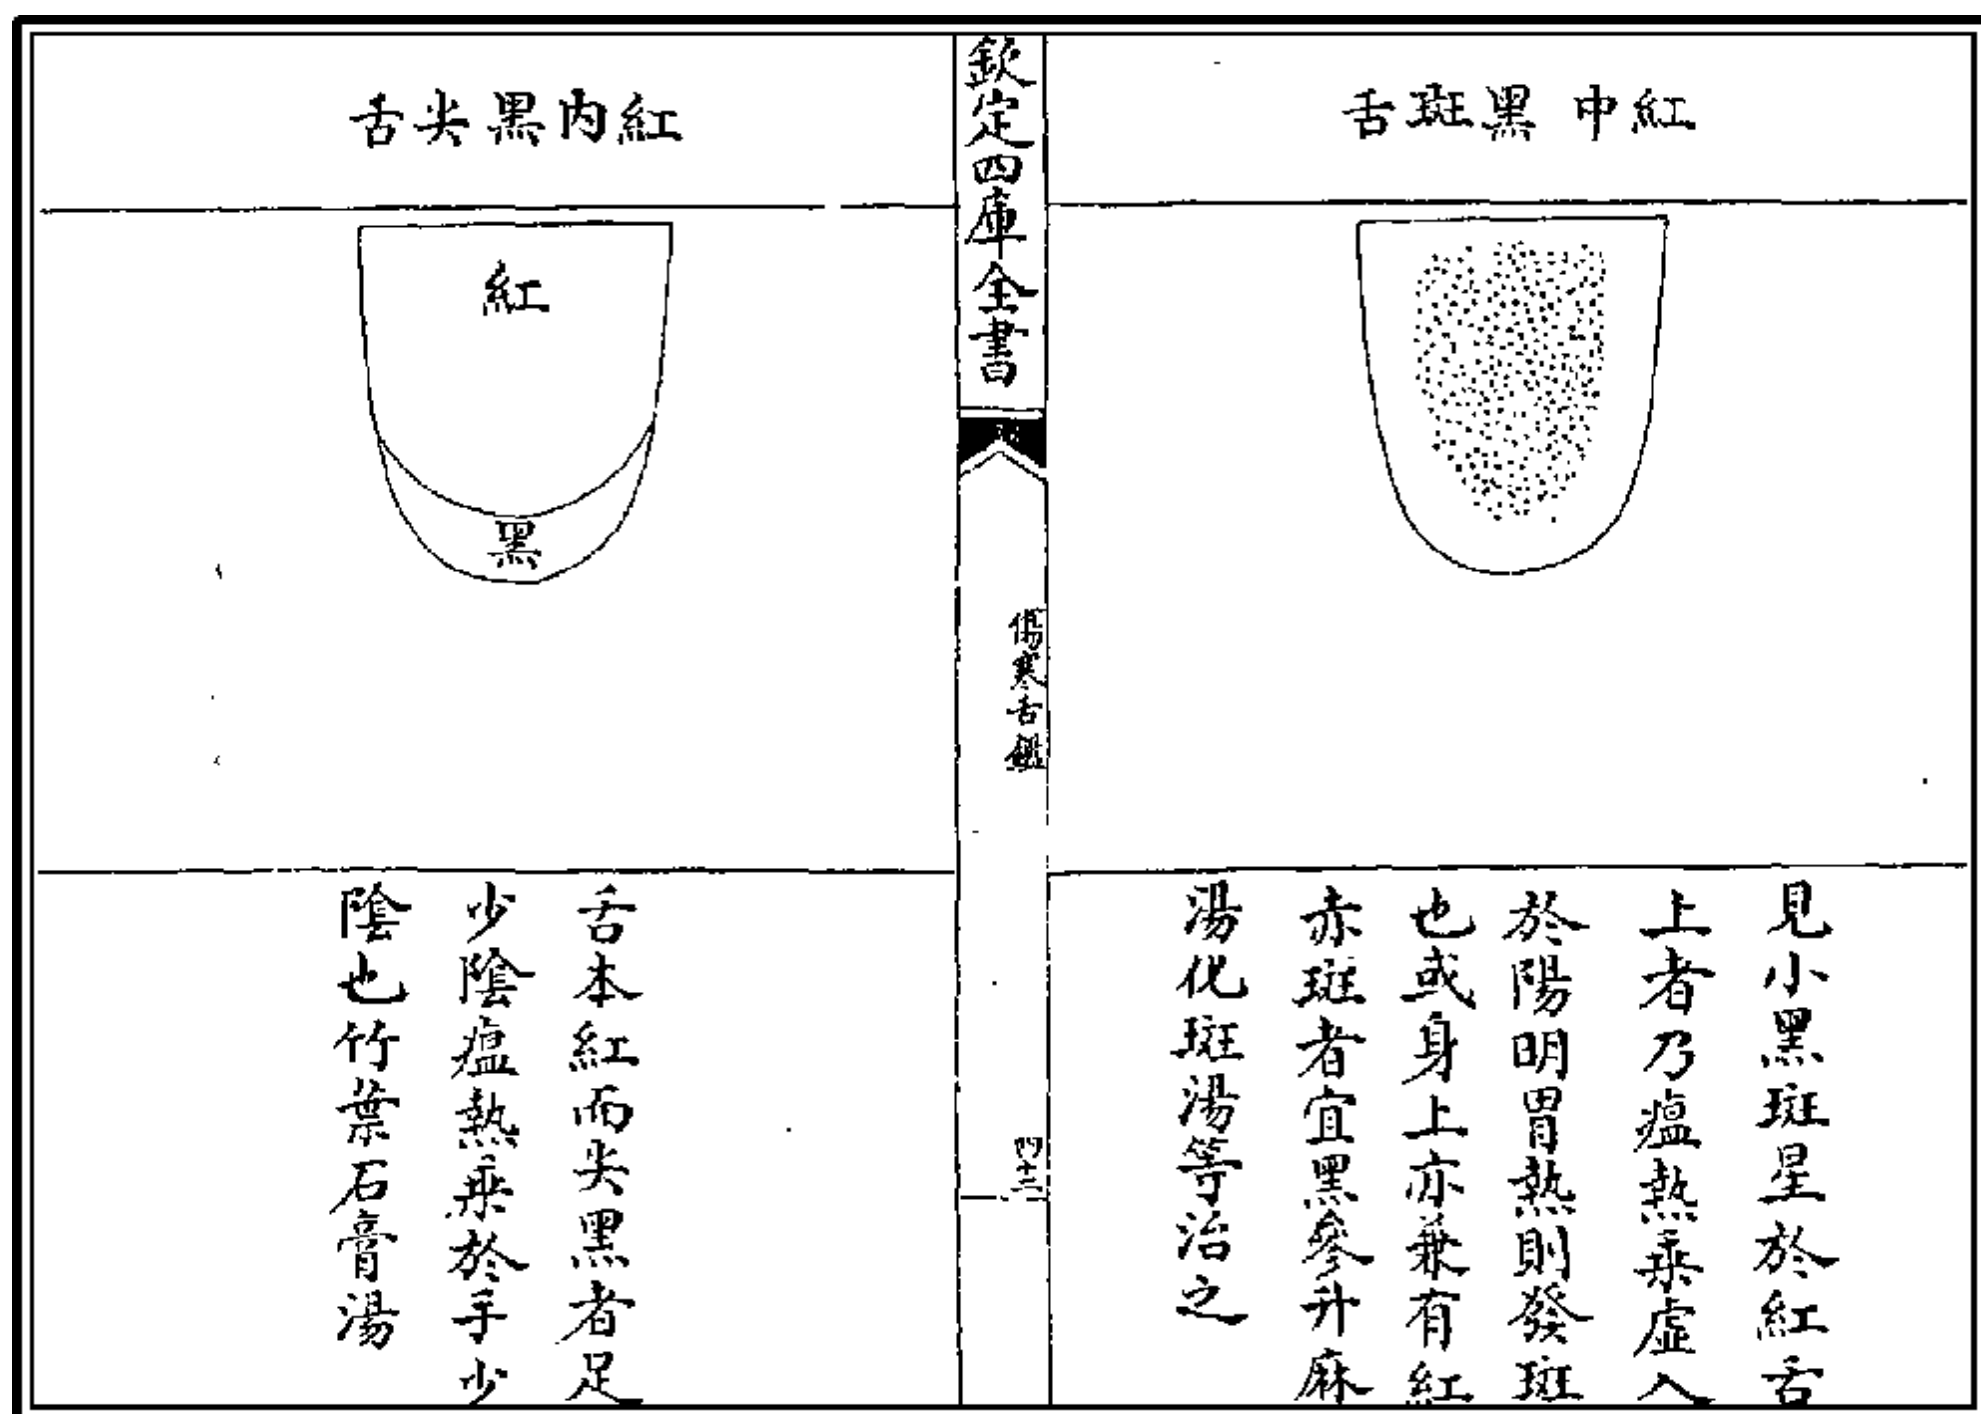 紅中黑斑舌
見小黑斑星於紅舌
上者乃瘟熱乘虛入
於陽明胃熱則發斑
也或身上亦兼有紅
赤斑者宜黑參升麻
湯化斑湯等治之
欽定四庫全書
傷寒舌鑑
紅內黑尖舌
紅
黑
舌本紅而尖黑者足
少陰瘟熱乘於手少
陰也竹葉石膏湯